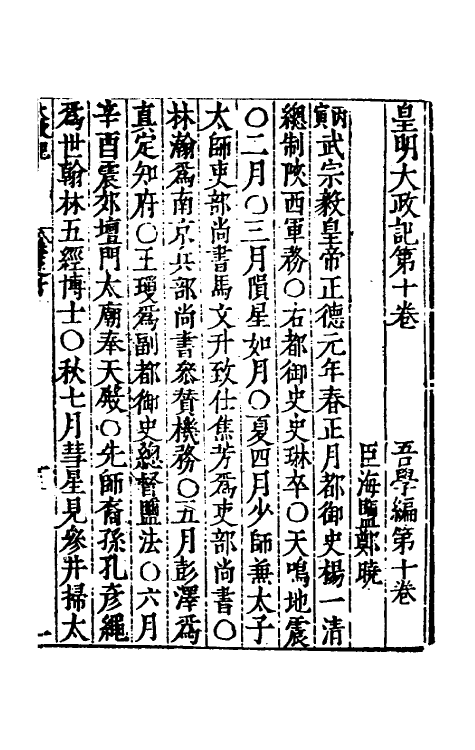 皇明大政記第十卷　吾學編第十卷
臣海鹽鄭曉
丙寅武宗毅皇帝正德元年春正月都御史楊一清
總制陝西軍務〇右都御史史琳卒〇天鳴地震
〇二月〇三月隕星如月〇夏四月少師兼太子
太師吏部尚書馬文升致仕焦芳爲吏部尚書〇
林瀚爲南京兵部尚書參贊機務〇五月彭澤爲
真定知府〇王瓊爲副都御史總督鹽法〇六月
辛酉震郊壇門太廟奉天殿〇先師裔孫孔彥繩
爲世翰林五經博士〇秋七月彗星見參井掃太